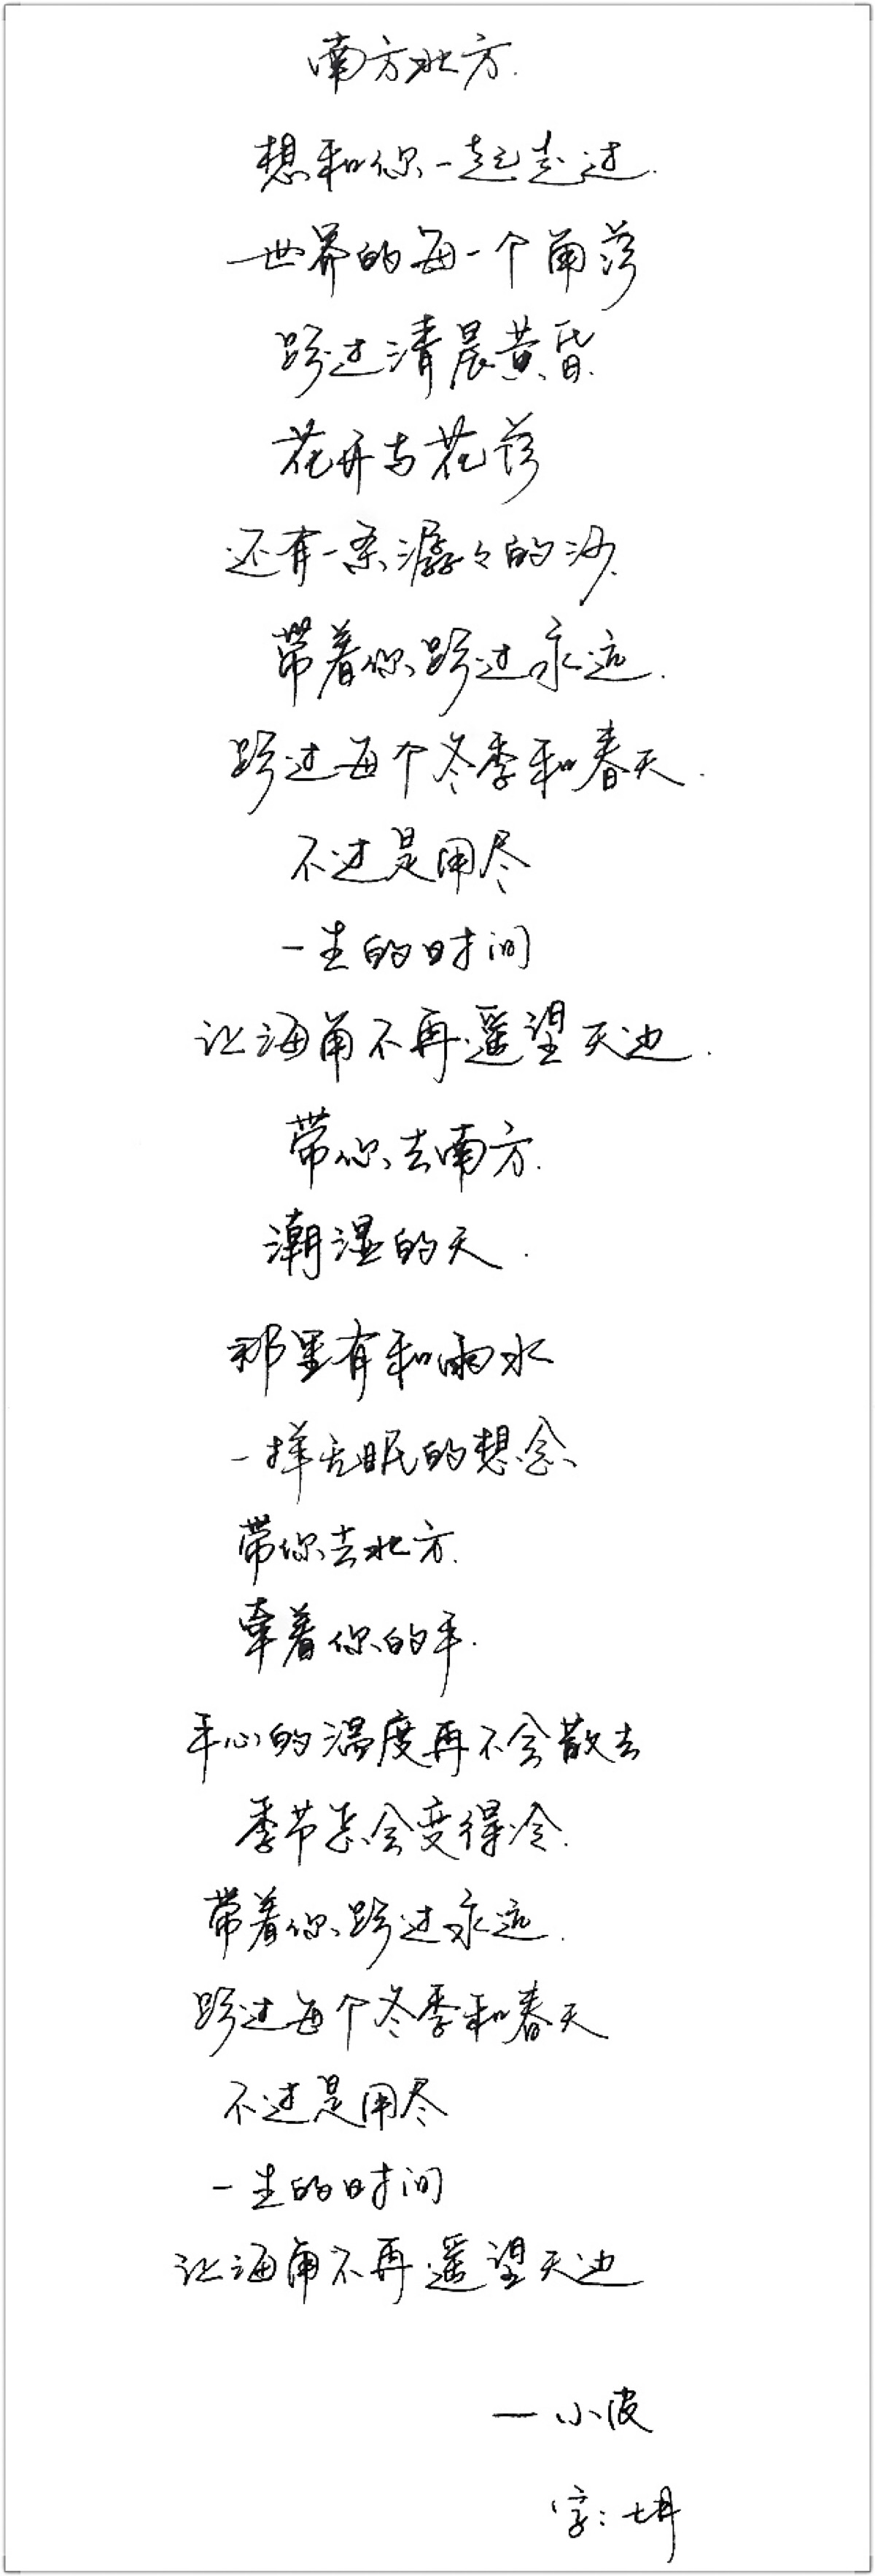 南方北方.
想和你一起走过.
世界的每一个角落
路过清晨黄昏.
花开与花落
还有一条潺々的沙.
带着你路过永远.
路过每个冬季和春天.
不过是用尽
一生的时间
让海角不再遥望天边.
带你去南方.
潮湿的天.
那里有和雨水
一样无眠的想念
带你去北方.
牵着你的手.
手心的温度再不会散去
季节怎会变得冷.
带着你路过永远.
路过每个冬季和春天
不过是用尽
一生的时间
让海角不再遥望天边
— 小波
字: